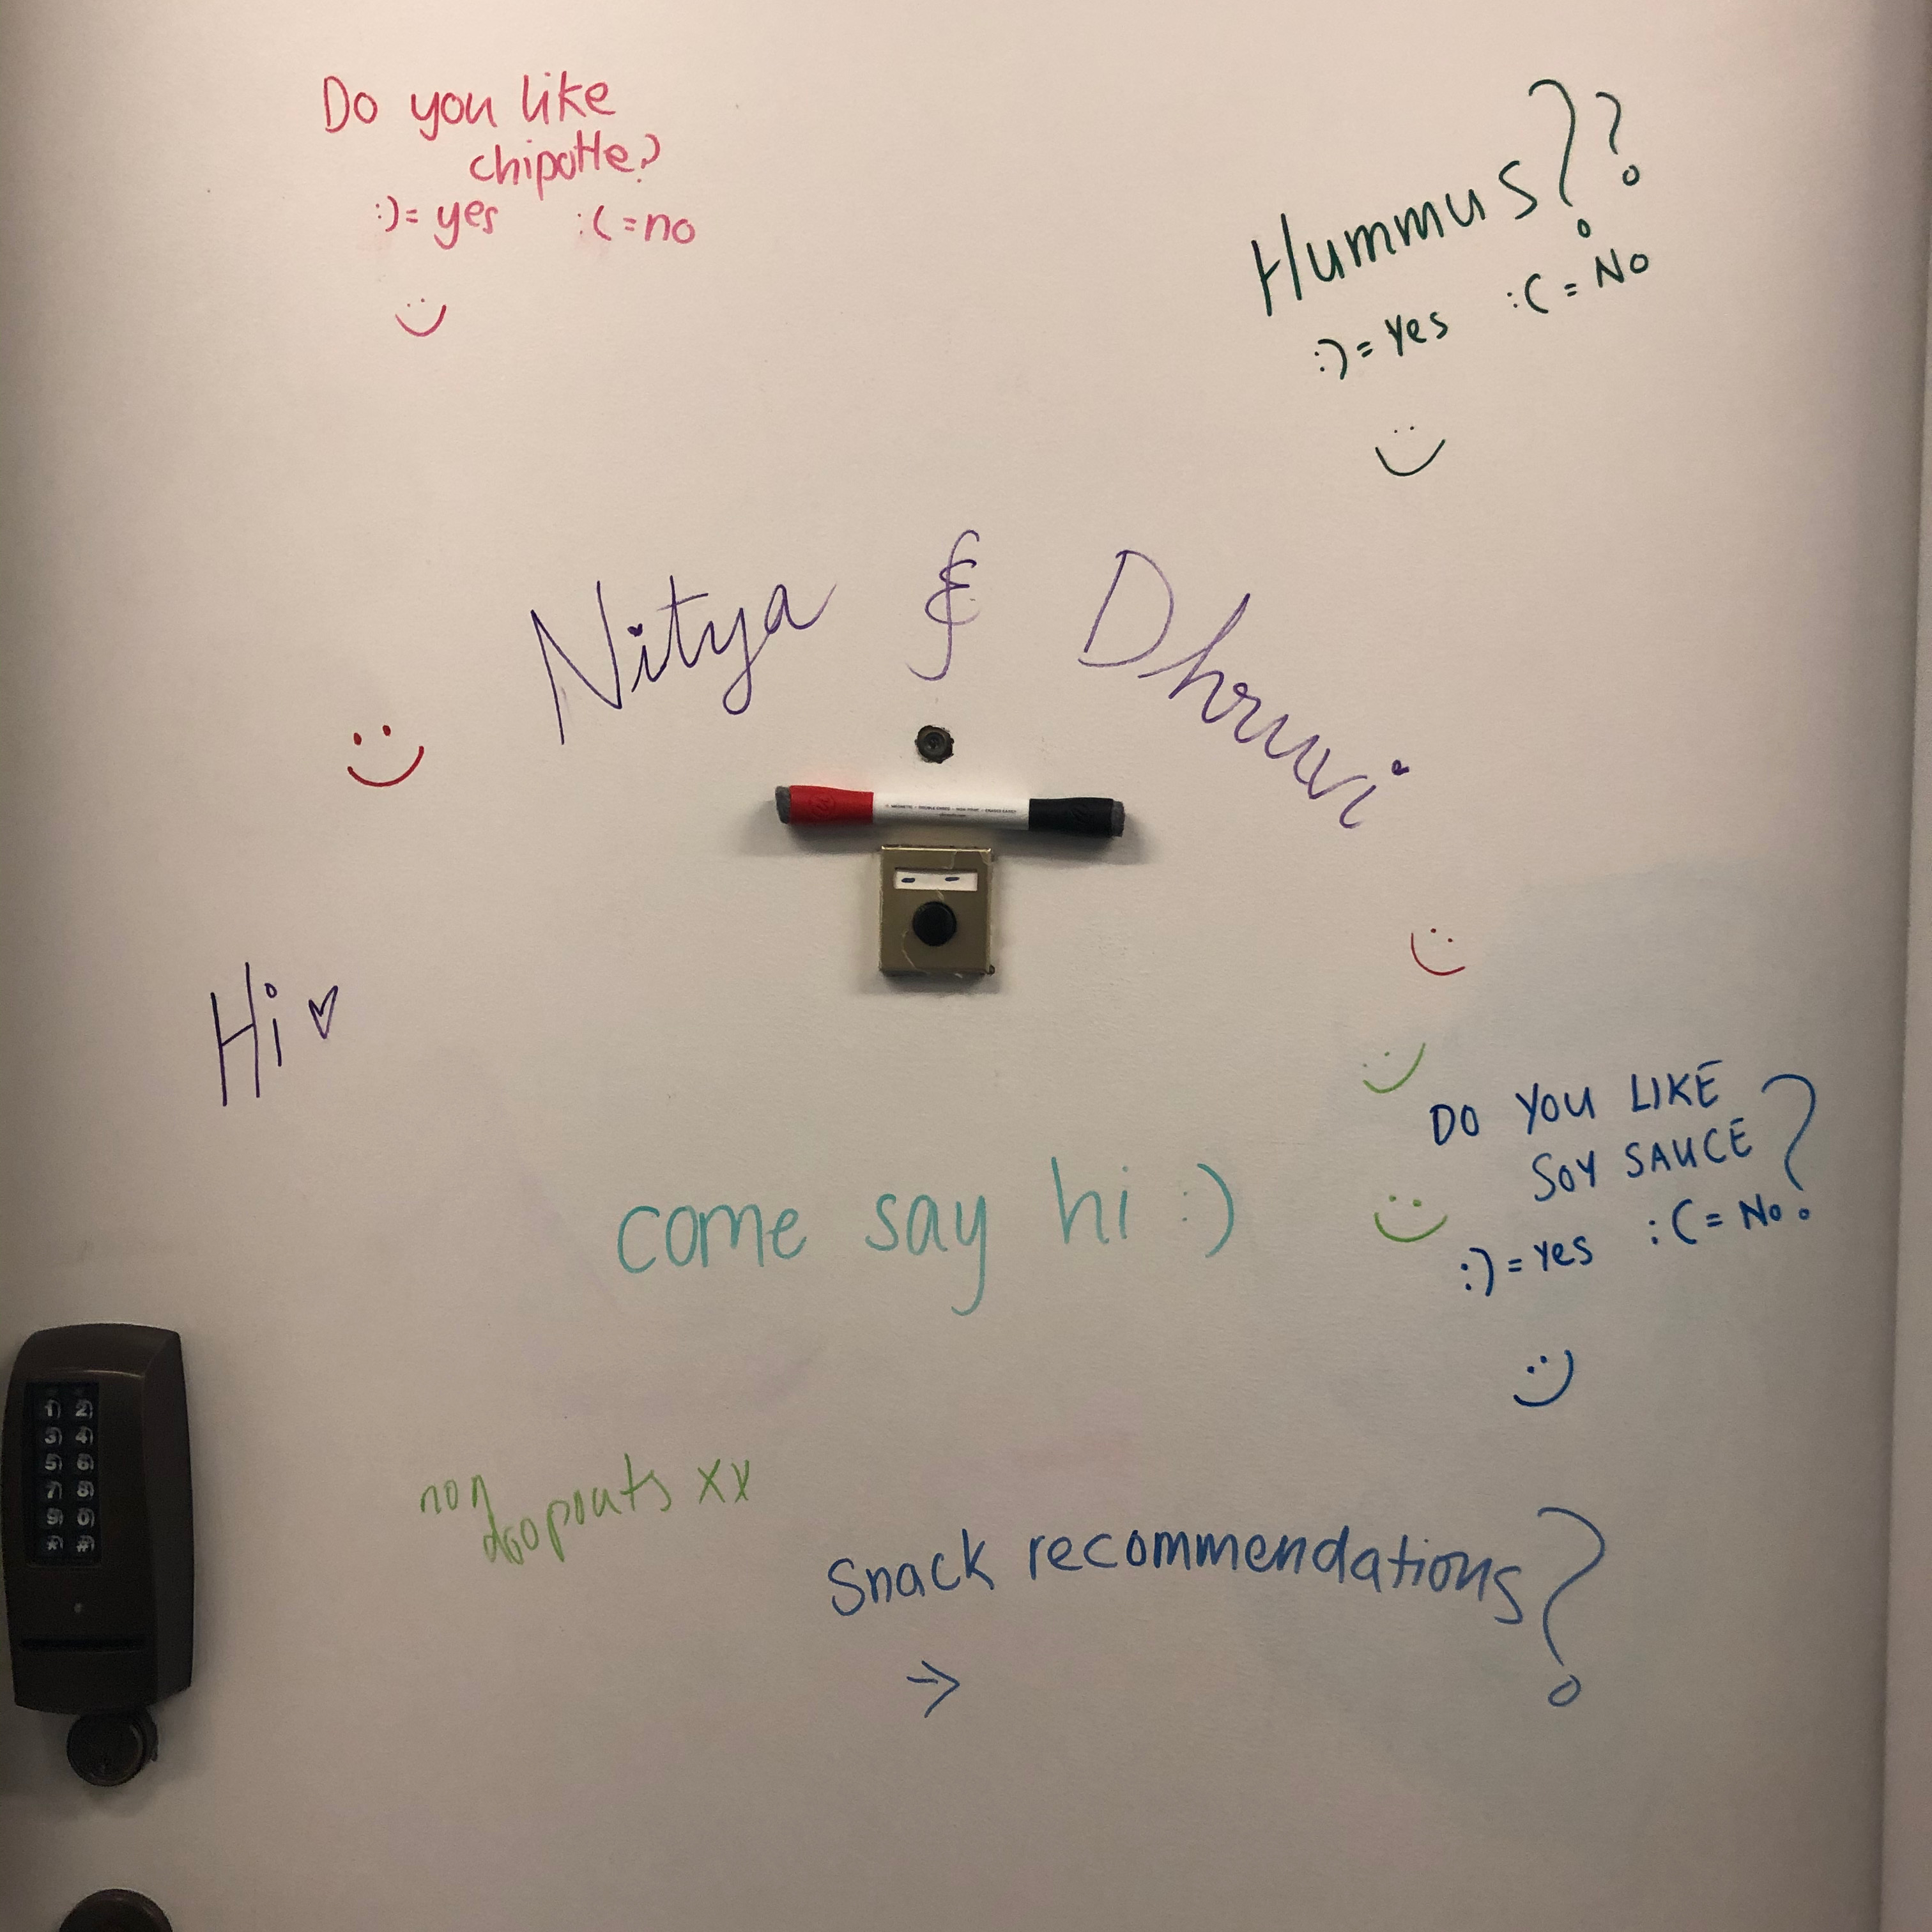 Do you like
chipotle?
:)= yes :(=no
Hummus??
:)= Yes :(= No
Nitya & Dhruvi
Hi ♡
DO YOU LIKE
SOY SAUCE?
:)= Yes :(= No
come say hi :)
1 2
3 4
5 6
7 8
9 0
* #
non
dropouts xx
Snack recommendations?
→